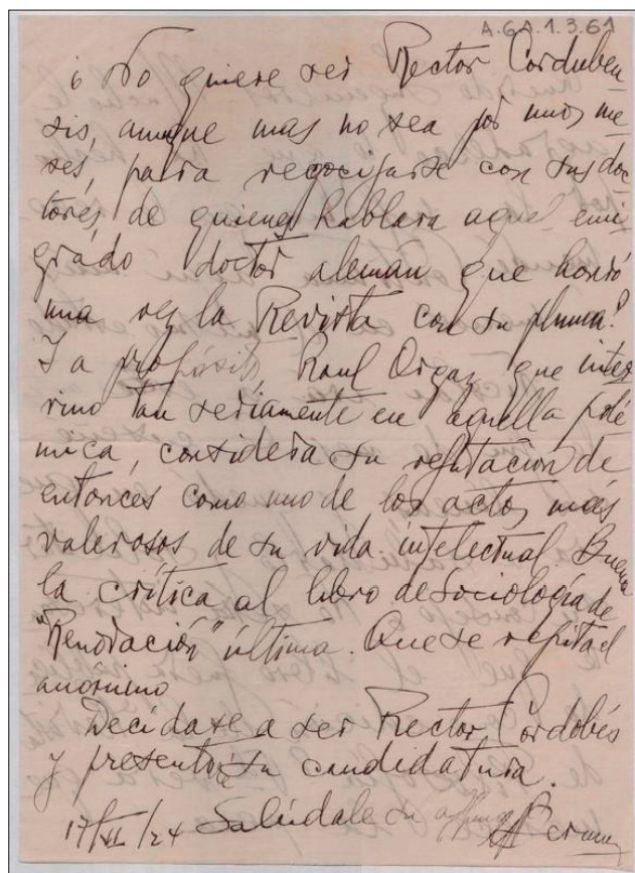 A.6A.1.3.61
¿ No quiere ser Rector Corduben-
sis, aunque mas no sea por unos me-
ses, para regocijarse con sus doc-
tores, de quienes hablara aquel emi-
grado doctor aleman que honró
una vez la Revista con su pluma?
Y a propósito, Raul Orgaz, que inter
vino tan seriamente en aquella polé
mica, considera su refutacion de
entonces como uno de los actos más
valerosos de su vida intelectual. Buena
la crítica al libro de Sociología de
"Renovación" última. Que se repita el
anonimo
Decídase a ser Rector Cordobés
y presento su candidatura.
17/XI/24 Salúdale su affmo